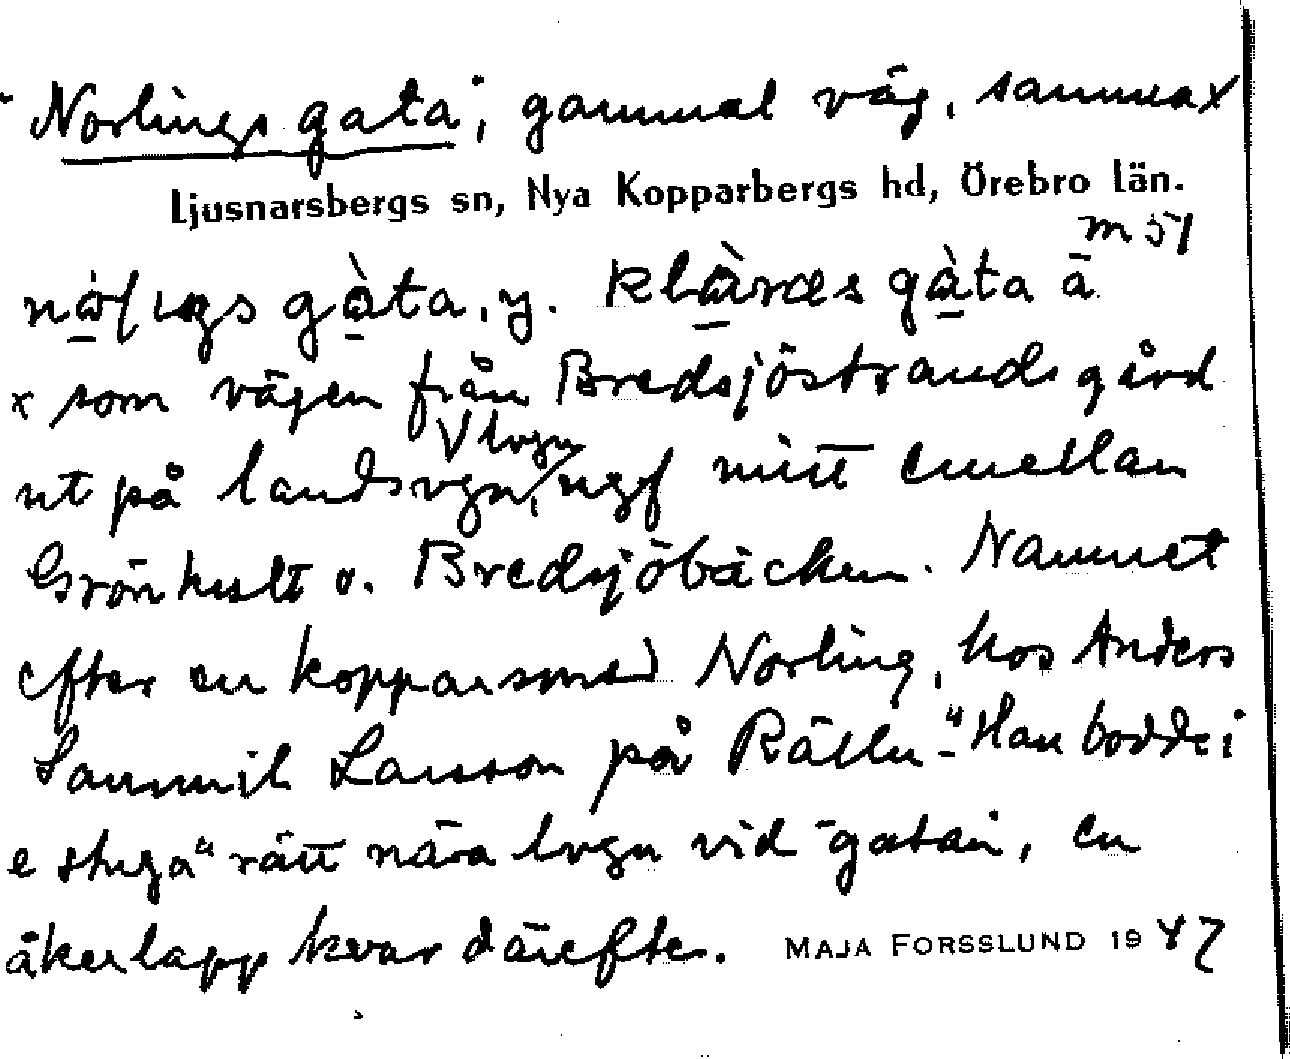 "Norlings gata", gammal väg, samma x
Ljusnarsbergs sn, Nya Kopparbergs hd, Örebro län.
m 51
gàta, y. klàræs gàta ä
x som vägen från Bredsjöstrands gård
V lvgn
ut på landsvgn, ngf mitt emellan
Grönhult o. Bredsjöbäcken. Namnet
efter en kopparsmed Norling, hos Anders
Sammil Larsson på Rälln - "Han bodde i
e stuga" rätt nära lvgn vid "gatan", en
åkerlapp kvar därefter. MAJA FORSSLUND 1947